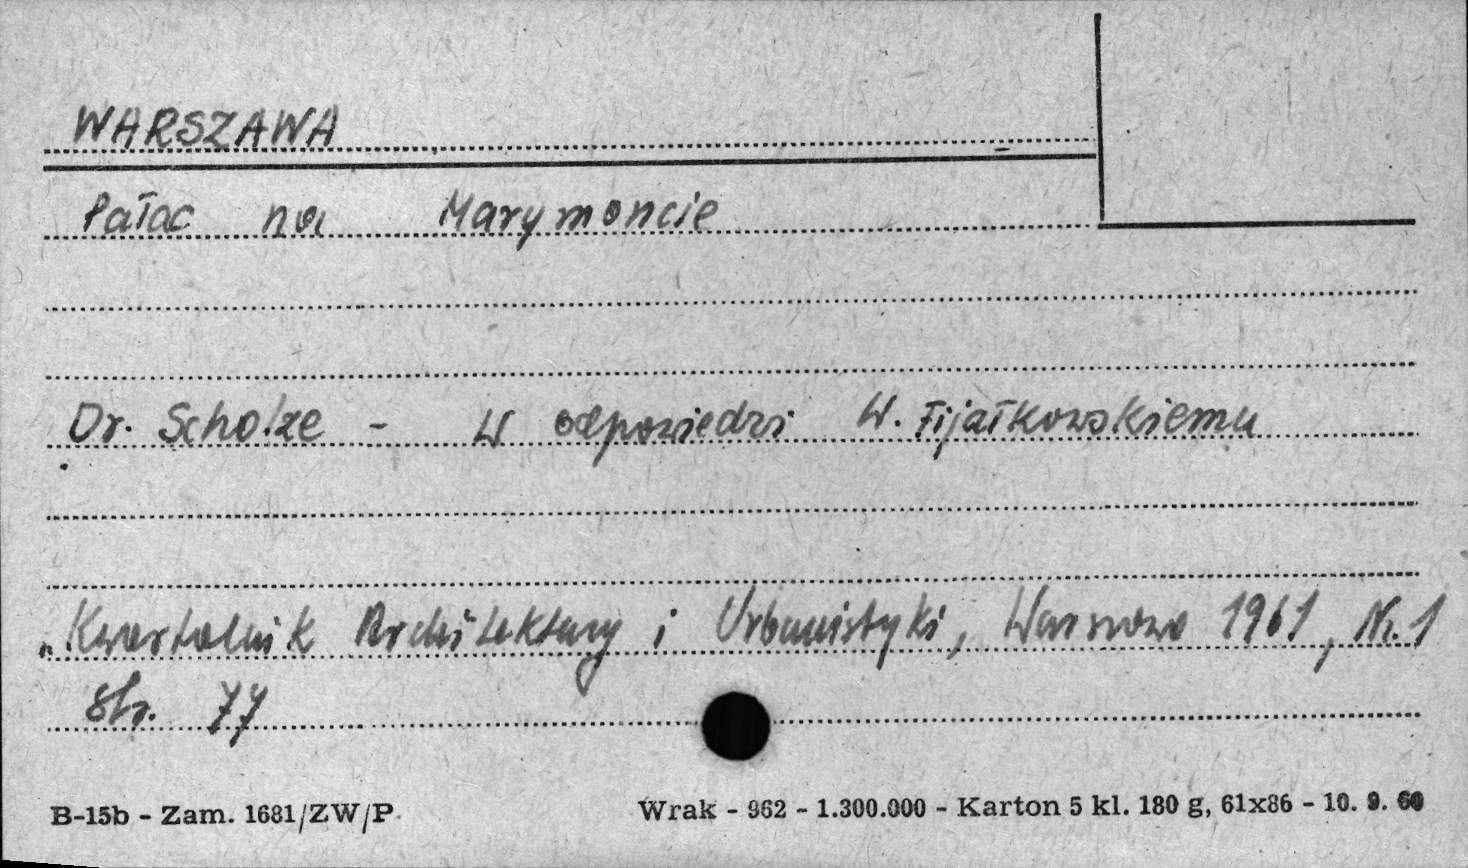 WARSZAWA
Pałac na Marymoncie
Dr. Scholze - W odpowiedzi W. Fijałkowskiemu
„Kwartalnik Architektury i Urbanistyki, Warszawa 1961, Nr. 1
Str. 77
B-15b - Zam. 1681/ZW/P
Wrak - 962 - 1.300.000 - Karton 5 kl. 180 g, 61x86 - 10. 9. 60